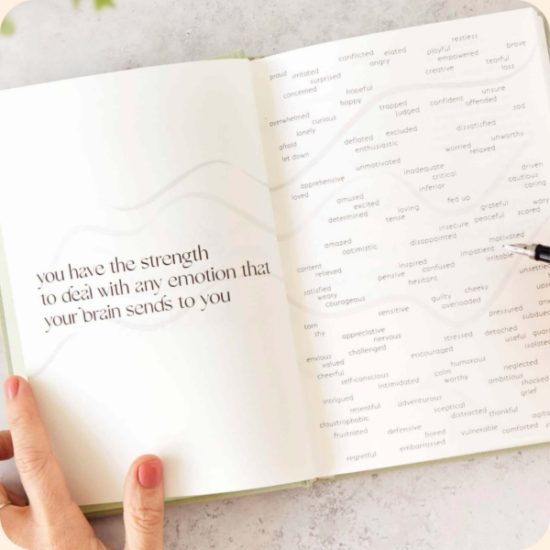 you have the strength
to deal with any emotion that
your brain sends to you
restless
conflicted elated playful brave
proud irritated angry empowered tearful
surprised creative loss
concerned hopeful unsure
happy trapped confident offended
overwhelmed curious judged sad
lonely
afraid deflated excluded dissatisfied unworthy
let down enthusiastic worried relaxed
unmotivated
inadequate driven
apprehensive critical cautious
loved inferior caring
amused fed up
excited loving grateful
determined tense peaceful scared
insecure
amazed disappointed motivated
optimistic
content inspired impatient irritable
relieved pensive confused
hesitant
satisfied cheeky
weary guilty
courageous overloaded
sensitive pressured
torn
shy appreciative stressed detached useful
nervous
envious challenged encouraged isolated
valued humorous
cheerful calm
selfconscious worthy ambitious shocked
intimidated grief
intrigued adventurous
resentful sceptical
claustrophobic distracted thankful
frustrated defensive bored vulnerable comforted
embarrassed
regretful